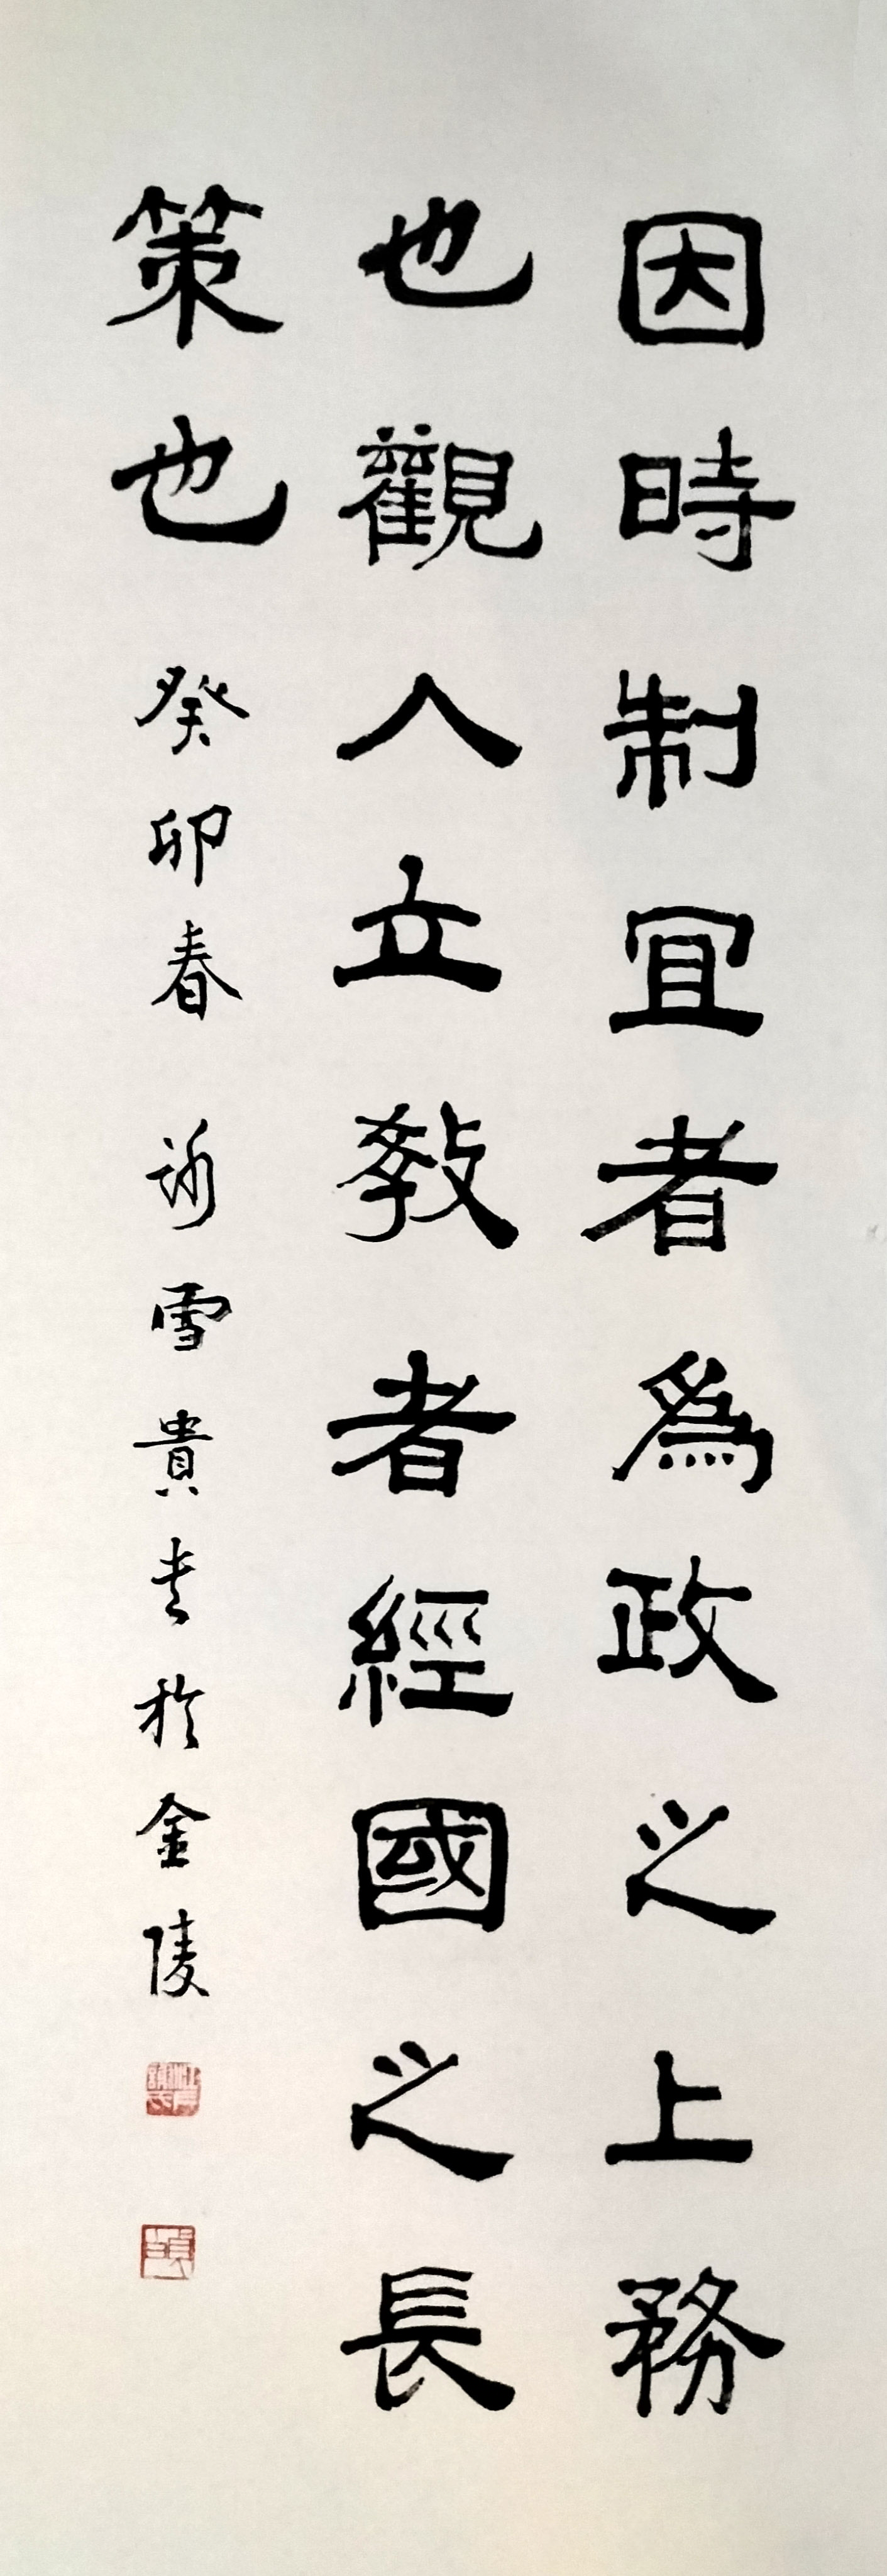 因時制宜者爲政之上務
也觀人立教者經國之長
策也 癸卯春 雪貴书於金陵